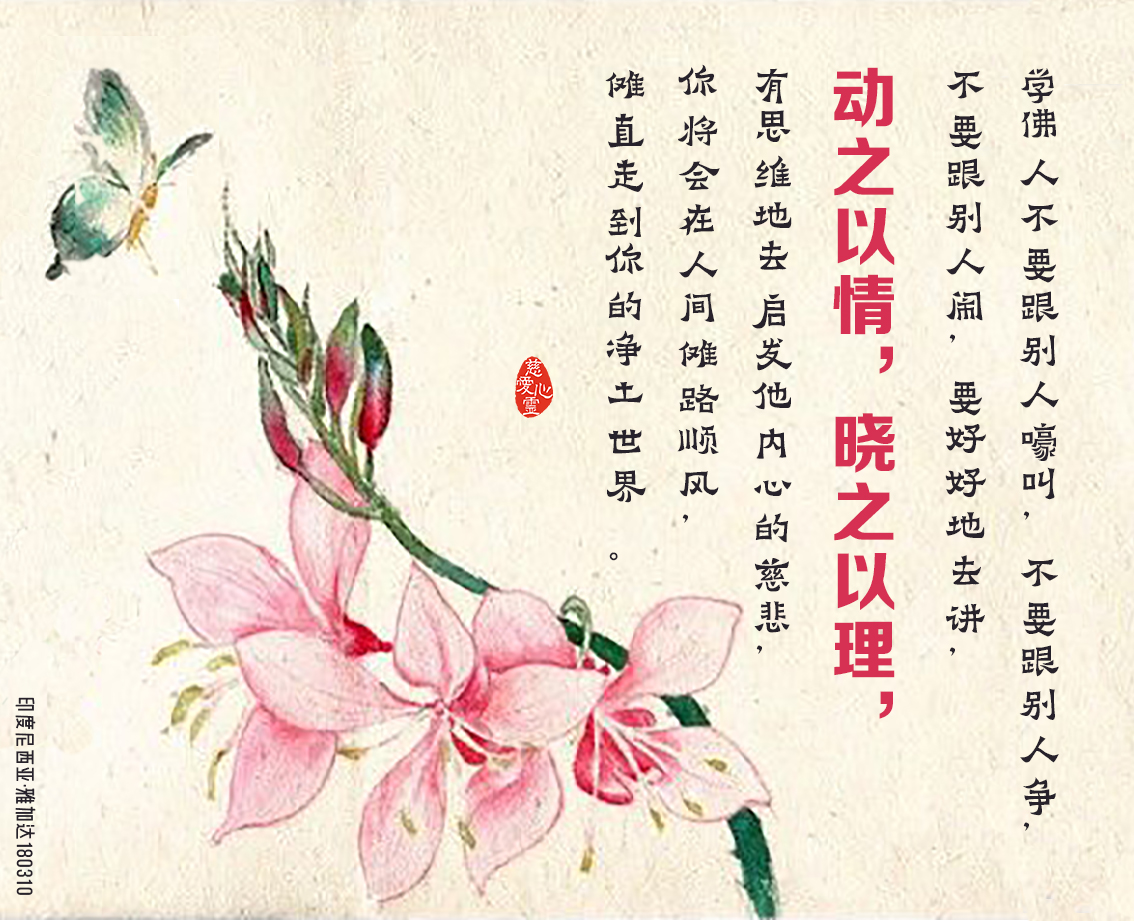 学佛人不要跟别人嚎叫，不要跟别人争，
不要跟别人闹，要好好地去讲，
动之以情，晓之以理，
有思维地去启发他内心的慈悲，
你将会在人间傩路顺风，
傩直走到你的净土世界。
慈愛心靈
印度尼西亚·雅加达180310